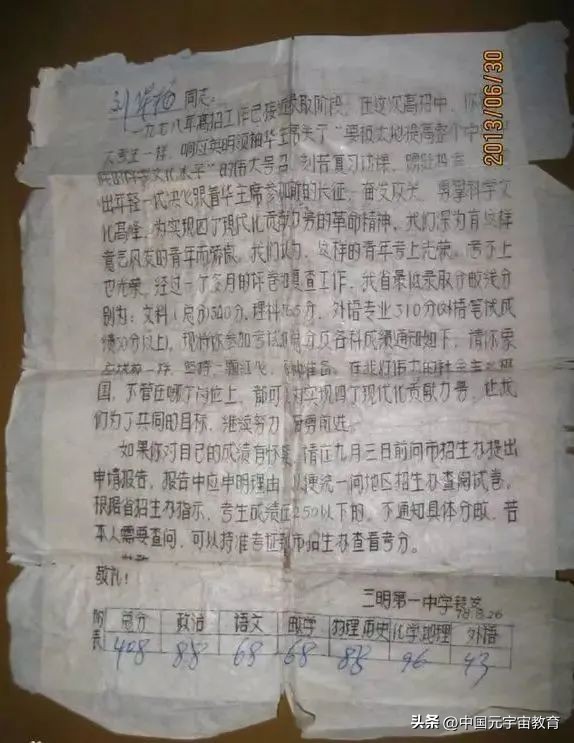 刘 同志:
一九七八年高招工作已接近录取阶段,在这次高招中,你
大考生一样,响应英明领袖华主席关于“要极大地提高整个中
民的科学文化水平”的伟大号召,刻苦复习功课,踴跃报考
出年轻一代决心跟着华主席参加新的长征,奋发攻关,勇攀科学文
化高峰,为实现四个现代化贡献力量的革命精神,我们深为有这样
意气风发的青年而骄傲。我们认为,这样的青年考上光荣,考不上
也光荣。经过一个多月的评卷和复查工作,我省最低录取分数线分
别为:文科(总分)340分,理科 分,外语专业310分(外语笔试成
绩50分以上),现将你参加考试的总分及各科成绩通知如下,请你象
一样,坚持一颗红心, 种准备,在我们伟大的社会主义祖
国,不管在哪个岗位上,都可 对实现四个现代化贡献力量,让我
们为了共同的目标,继续努力, 勇前进。
如果你对自己的成绩有怀疑,请在九月三日前向市招生办提出
申请报告,报告中应申明理由,以便统一向地区招生办查阅试卷,
根据省招生办指示,考生成绩在250以下的,不通知具体分数,若
本人需要查问,可以持准考证到市招生办查看考分。
敬礼!
三明第一中学
78.8.26
附表 总分 政治 语文 数学 物理历史 化学地理 外语
408 88 68 68 88 96 43
2013/06/30
头条 @中国元宇宙教育